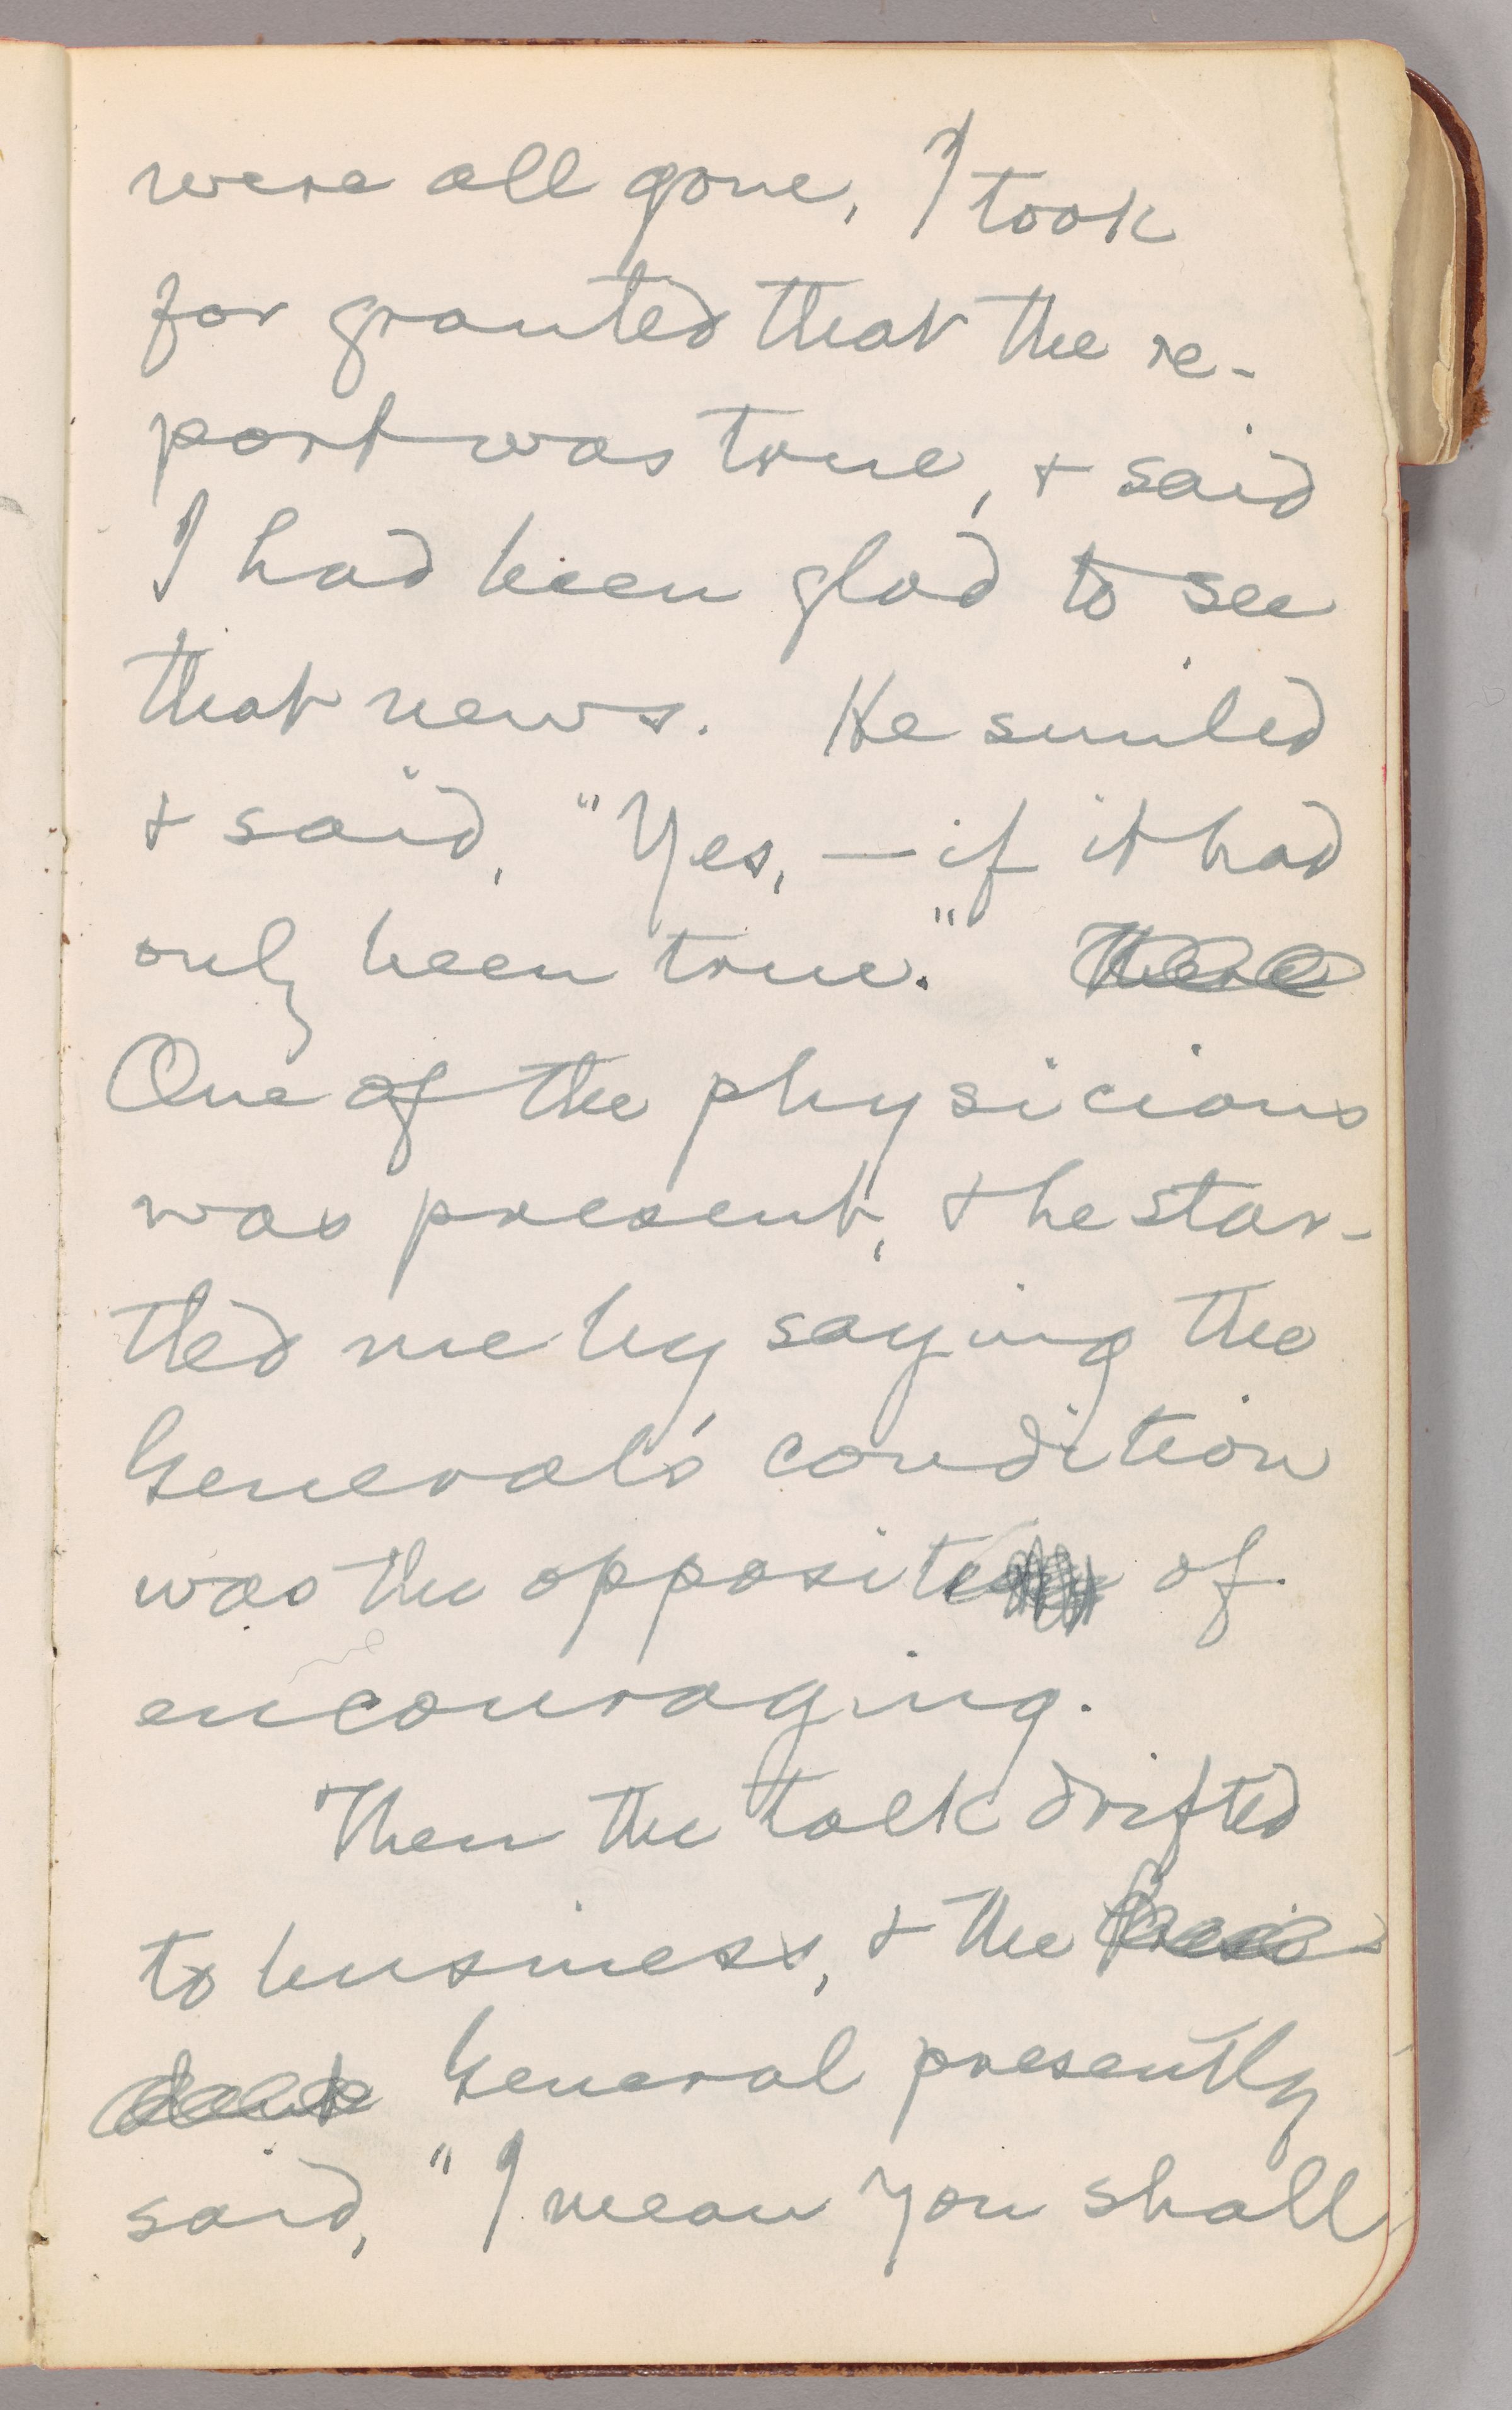 were all gone, I took
for granted that the re-
port was true, + said
I had been glad to see
that news. He smiled
+ said, "Yes, — if it had
only been true." There
One of the physicians
was present, + he star-
tled me by saying the
General's condition
was the opposite of
encouraging.
Then the talk drifted
to business, + the Presi-
dent General presently
said, "I mean you shall